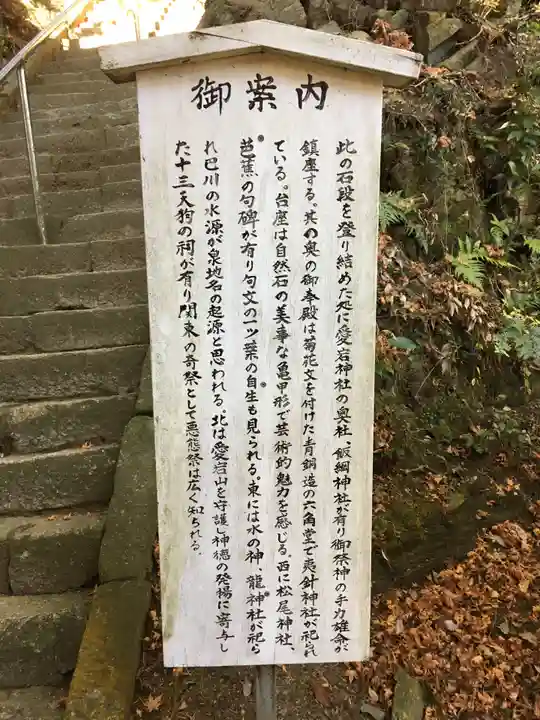 御案内
此の石段を登り結めた処に愛宕神社の奥社、飯綱神社が有り御祭神の手力雄命が
鎮座する。其の奥の御本殿は菊花文を付けた青銅造の六角堂で夷針神社が祀られ
ている。台座は自然石の美事な亀甲形で芸術的魅力を感じる。西に松尾神社、
芭蕉の句碑が有り句文の一ツ葉の自生も見られる。東には水の神、龍神社が祀ら
れ巴川の水源が泉地名の起源と思われる。北は愛宕山を守護し神徳の発揚に寄与し
た十三天狗の祠が有り関東の奇祭として悪態祭は広く知られる。